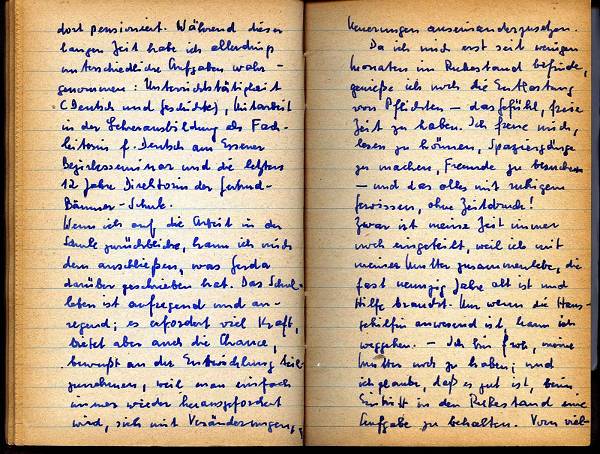 dort pensioniert. Während dieser
langen Zeit habe ich allerdings
unterschiedliche Aufgaben wahr-
genommen: Unterrichtstätigkeit
(Deutsch und Geschichte), Mitarbeit
in der Lehrerausbildung als Fach-
leiterin f. Deutsch am Essener
Bezirksseminar und die letzten
12 Jahre Direktorin der Gertrud-
Bäumer-Schule.
Wenn ich auf die Arbeit in der
Schule zurückblicke, kann ich mich
dem anschließen, was Gerda
darüber geschrieben hat. Das Schul-
leben ist aufregend und an-
regend; es erfordert viel Kraft,
bietet aber auch die Chance,
bewußt an der Entwicklung teil-
zunehmen, weil man einfach
immer wieder herausgefordert
wird, sich mit Veränderungen,
Neuerungen auseinanderzusetzen.
Da ich mich erst seit wenigen
Monaten im Ruhestand befinde,
genieße ich noch die Entlastung
von Pflichten — das Gefühl, freie
Zeit zu haben. Ich freue mich,
lesen zu können, Spaziergänge
zu machen, Freunde zu besuchen
— und das alles mit ruhigem
Gewissen, ohne Zeitdruck!
Zwar ist meine Zeit immer
noch eingeteilt, weil ich mit
meiner Mutter zusammenlebe, die
fast neunzig Jahre alt ist und
Hilfe braucht. Nur wenn die Haus-
gehilfin anwesend ist, kann ich
weggehen. — Ich bin froh, meine
Mutter noch zu haben; und
ich glaube, daß es gut ist, beim
Eintritt in den Ruhestand eine
Aufgabe zu behalten. Vom viel-